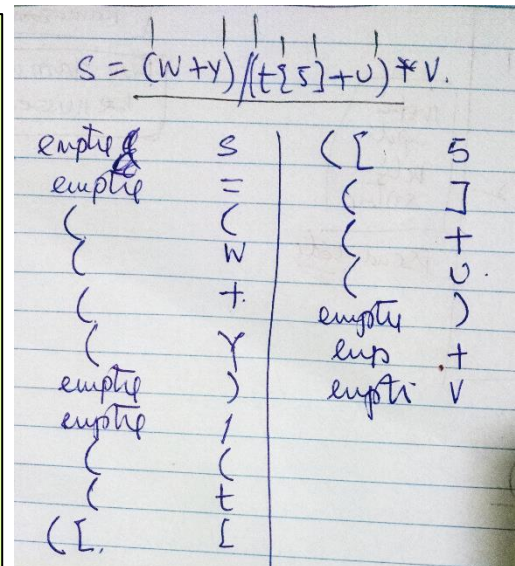 S = (W+Y)/(t[5]+U) * V.
emptie S
emptie =
( (
( W
( +
( Y
emptie )
emptie /
( (
( t
([. [
([ 5
( ]
( +
( U.
empty )
emp +
empti V